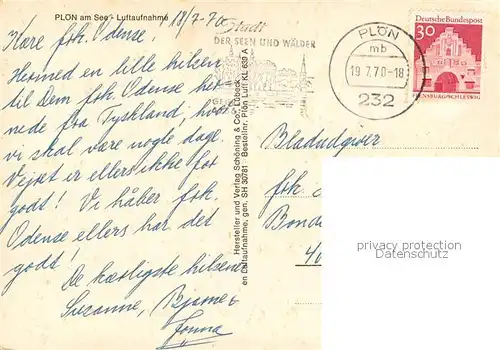 PLÖN am See - Luftaufnahme
18/7-70
Kære frk. Odense,
Hermed en lille hilsen
til Dem frk. Odense her
nede fra Tyskland, hvor
vi skal være nogle dage.
Vejret er ellers ikke for
godt! Vi håber frk.
Odense ellers har det
godt!
De kærligste hilsener
Susanne, Bjarne &
Jonna
Stadt
DER SEEN UND WÄLDER
PLÖN
mb
19.7.70-18
232
Deutsche Bundespost
30
FLENSBURG/SCHLESWIG
Hersteller und Verlag Schöning & Co., Lübeck
en Luftaufnahme, gen. SH 30781 Bestellnr. Plön Luft KL 639 A
frk.
privacy protection
Datenschutz